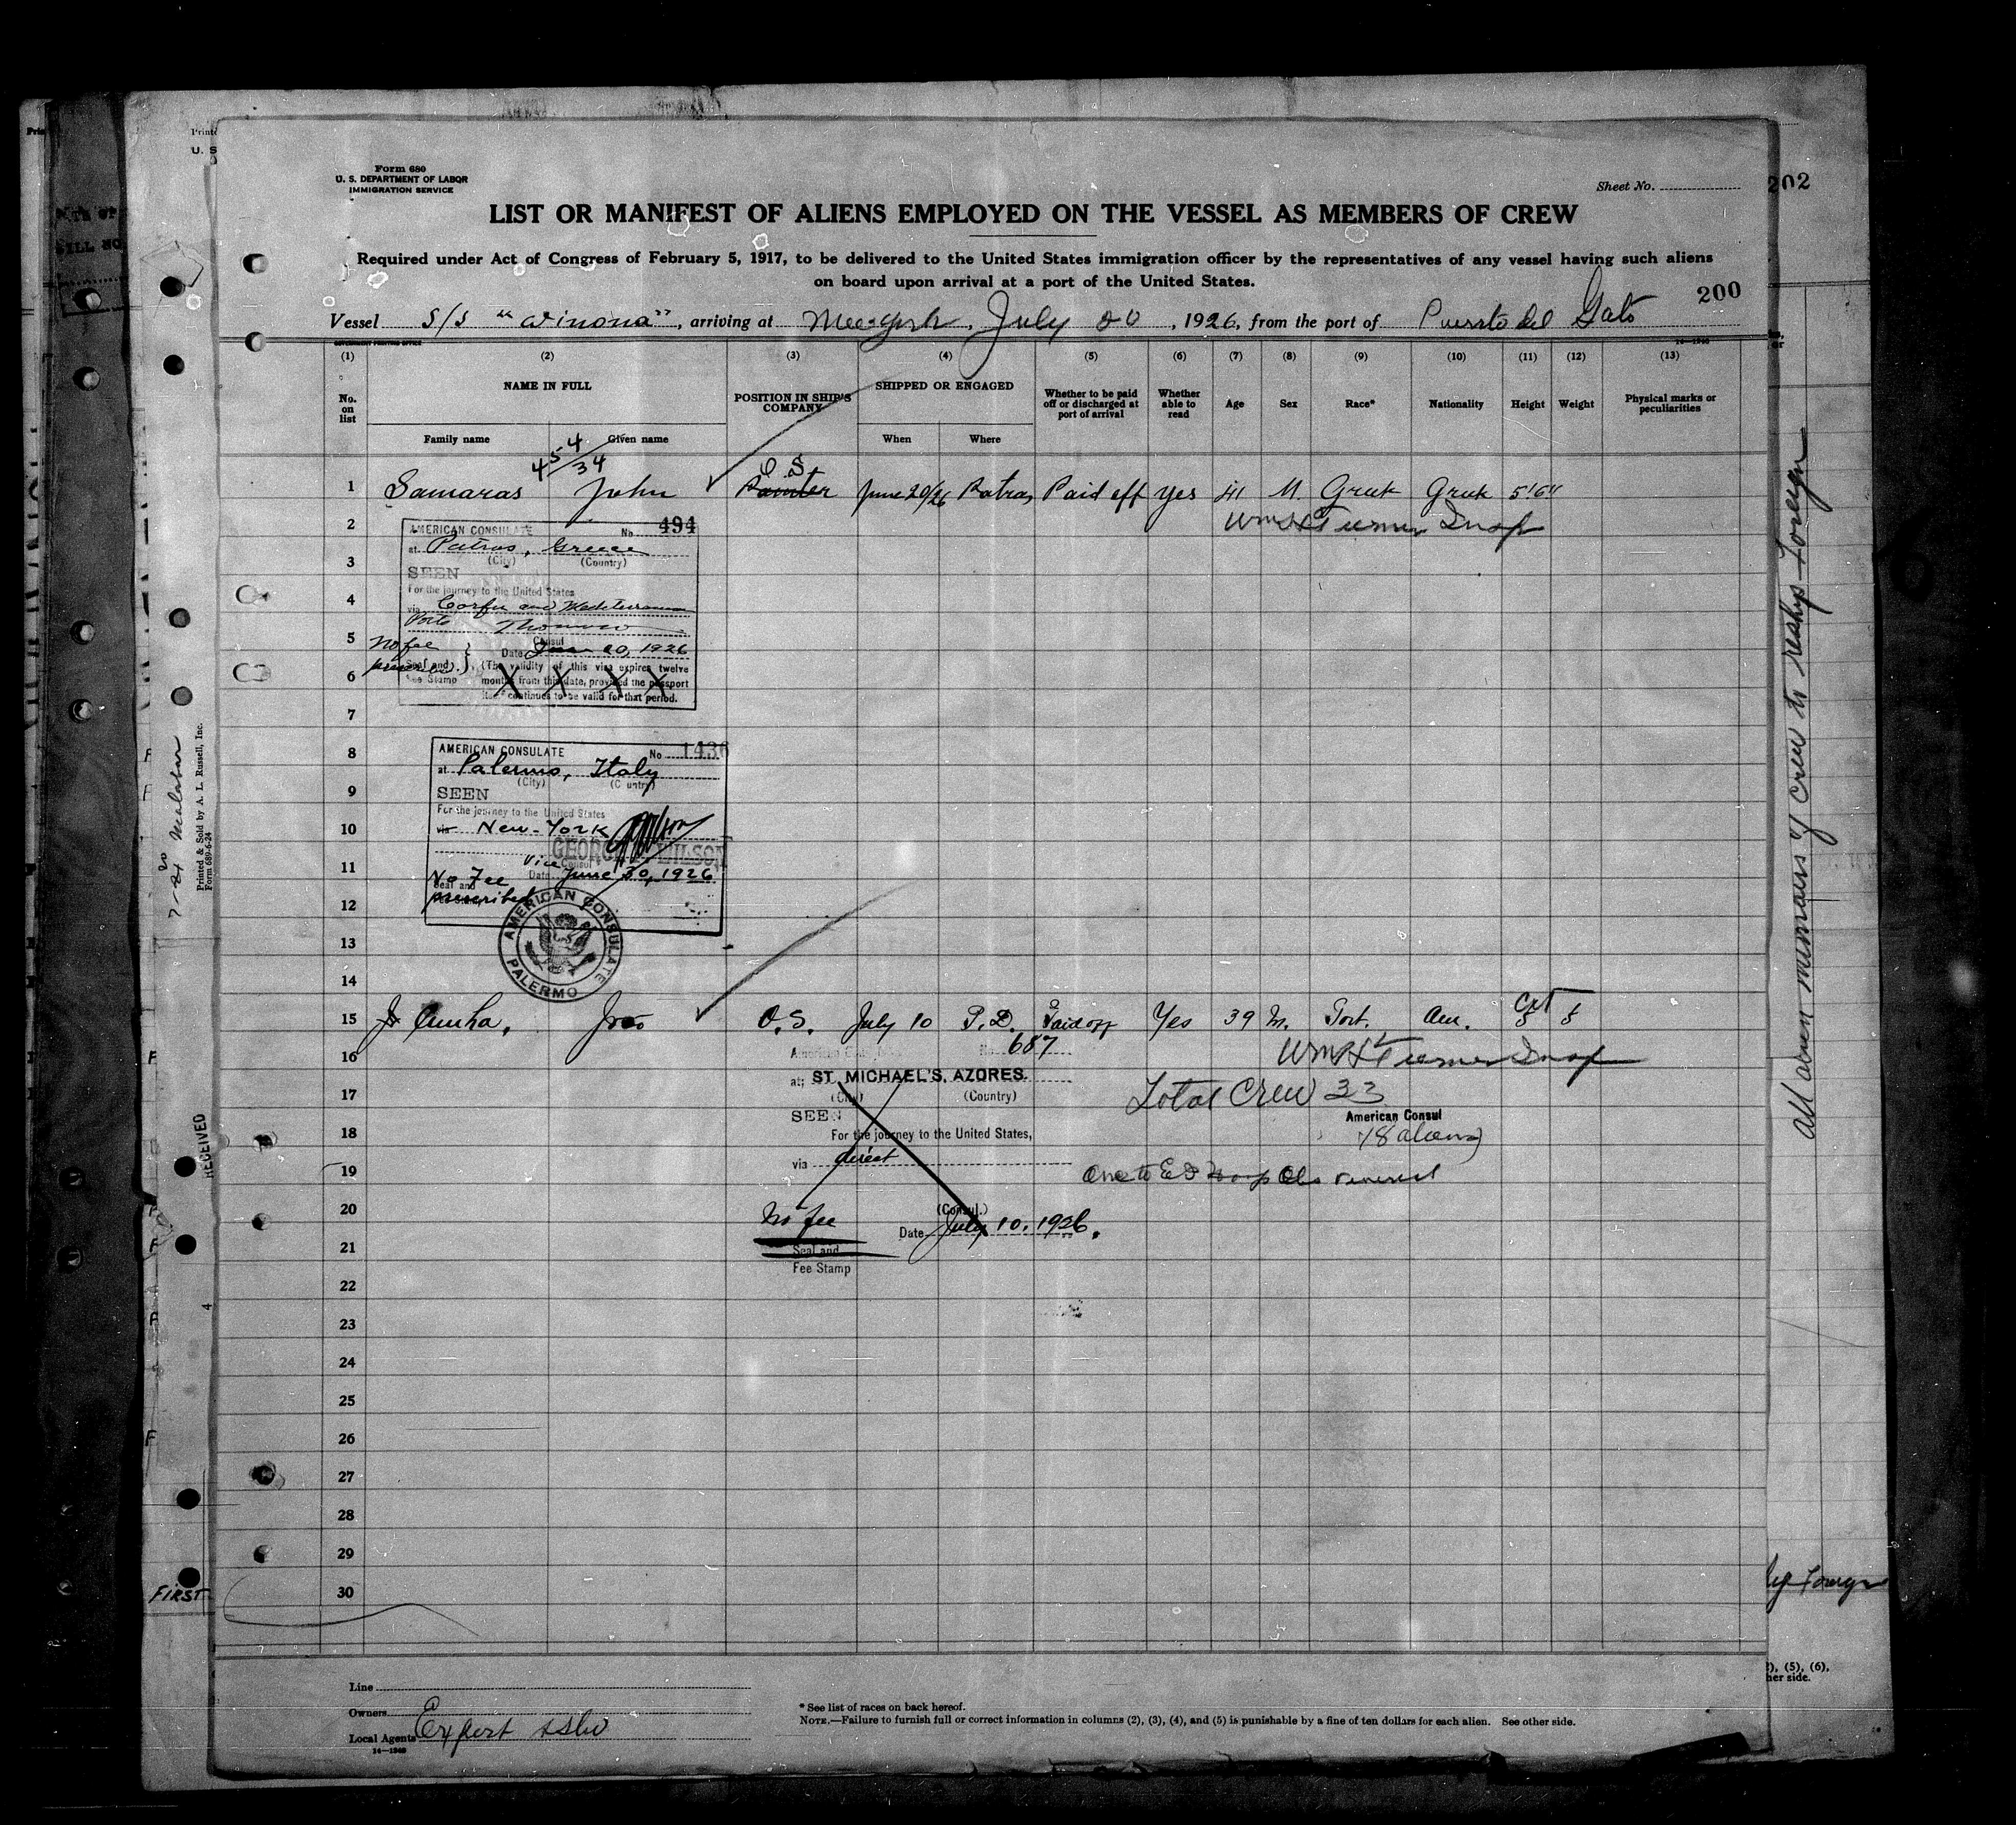 Form 680
U. S. DEPARTMENT OF LABOR
IMMIGRATION SERVICE
Sheet No.
202
LIST OR MANIFEST OF ALIENS EMPLOYED ON THE VESSEL AS MEMBERS OF CREW
Required under Act of Congress of February 5, 1917, to be delivered to the United States immigration officer by the representatives of any vessel having such aliens
on board upon arrival at a port of the United States.
200
Vessel S/S "Winona", arriving at New-York, July 20, 1926, from the port of Puerto del Gato
GOVERNMENT PRINTING OFFICE
(1) (2) (3) (4) (5) (6) (7) (8) (9) (10) (11) (12) (13)
No. on list
NAME IN FULL
POSITION IN SHIP'S COMPANY
SHIPPED OR ENGAGED
Whether to be paid off or discharged at port of arrival
Whether able to read
Age Sex Race* Nationality Height Weight
Physical marks or peculiarities
Family name Given name When Where
454/34
O S
1 Samaras John Painter June 20/26 Patras Paid off yes 41 M. Greek Greek 5'6"
2 Wm H Turner Insp
AMERICAN CONSULATE No 494
at Patras, Greece
(City) (Country)
3
SEEN
For the journey to the United States
4
via Corfu and Mediterranean
Ports
5
Consul
No fee Date June 20, 1926
prescribed
Seal and (The validity of this visa expires twelve
6
Fee Stamp months from this date, provided the passport
itself continues to be valid for that period.
7
8
AMERICAN CONSULATE No 1436
at Palermo, Italy
(City) (Country)
9
SEEN
For the journey to the United States
10
via New-York
GEORGE WILSON
Vice Consul
11
No Fee Date June 30, 1926
Seal and
prescribed
12
AMERICAN CONSULATE
PALERMO
13
14
15 Cunha, Joao O.S. July 10 P.D. Paid off Yes 39 M. Port. Am. 5 5
16 No. 687 Wm H Turner Insp
at; ST. MICHAEL'S, AZORES.
17
(City) (Country)
Total Crew 33
SEEN
American Consul
18
For the journey to the United States,
18 aliens
via direct
19
20
No fee (Consul.)
Date July 10, 1926.
21
Seal and
Fee Stamp
22
23
24
25
26
27
28
29
30
Line
Owners
Local Agents Export
14—1940
* See list of races on back hereof.
NOTE.—Failure to furnish full or correct information in columns (2), (3), (4), and (5) is punishable by a fine of ten dollars for each alien. See other side.
All alien members of Crew to reship Foreign
(5), (6),
her side.
Printed & Sold by A. L. Russell, Inc.
Form 689-6-24
RECEIVED
FIRST